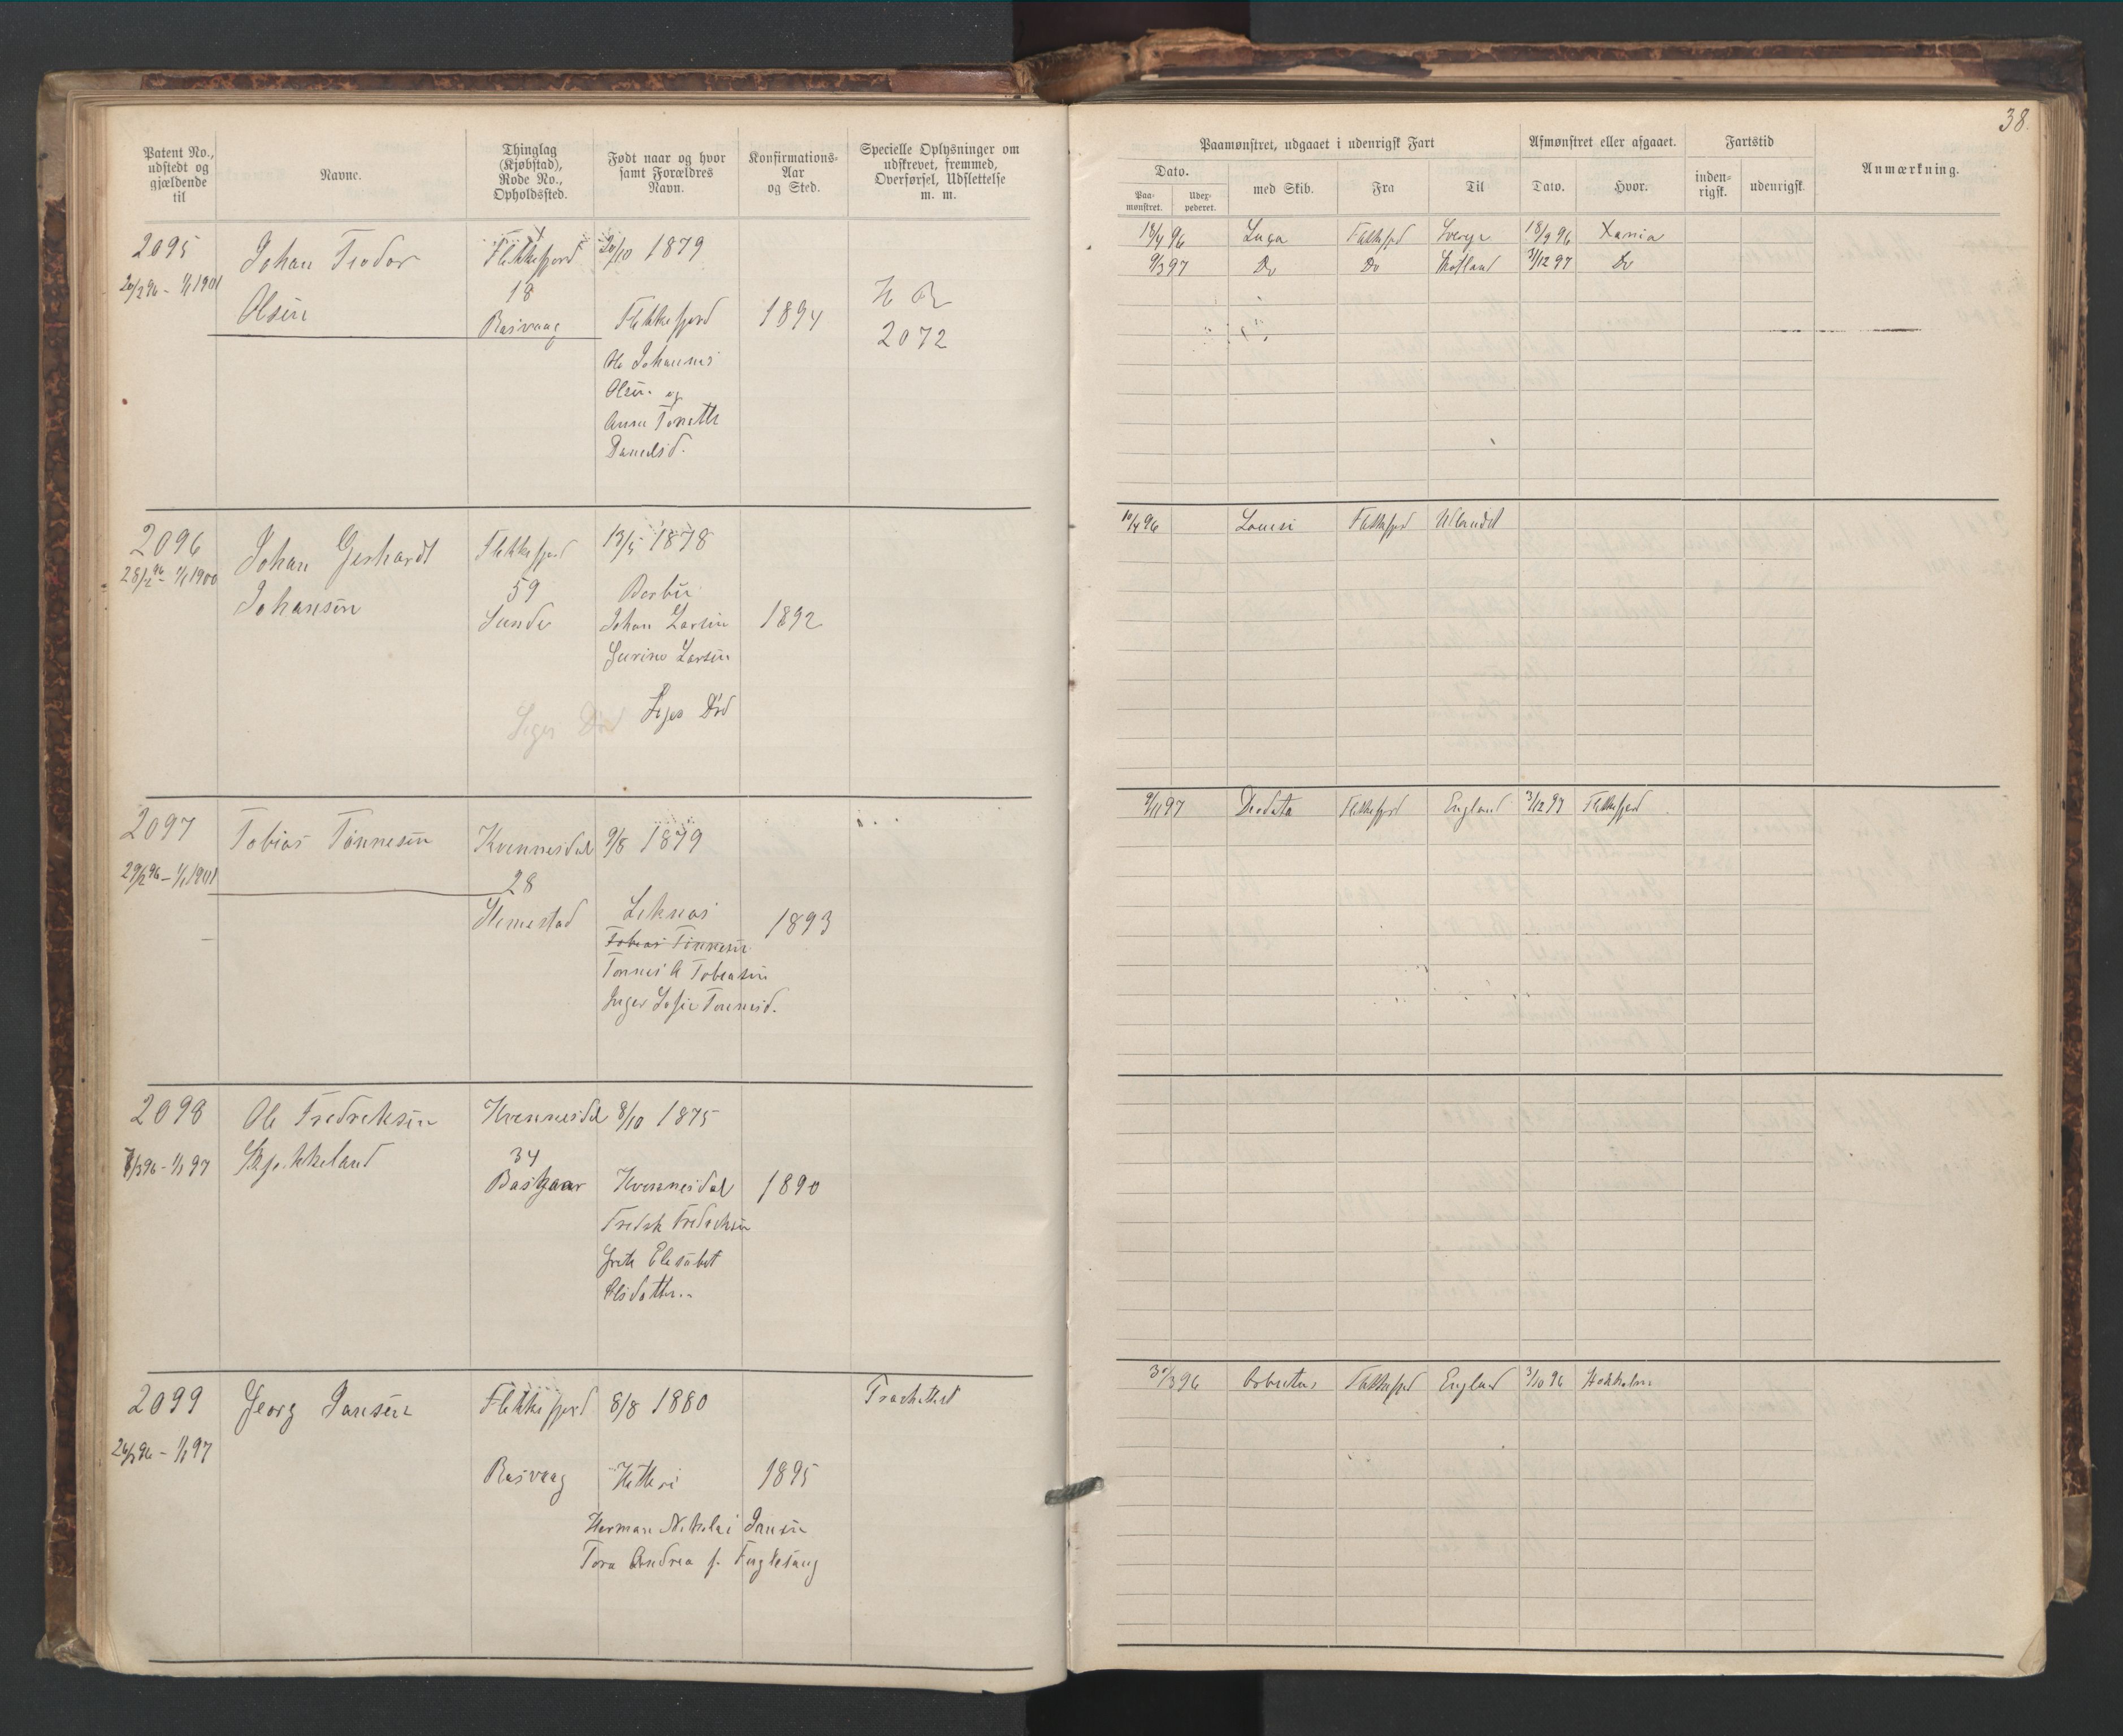 38.
Patent No., udstedt og gjældende til
Navne.
Thinglag (Kjøbstad), Rode No., Opholdssted.
Født naar og hvor samt Forældres Navn.
Konfirmations-Aar og Sted.
Specielle Oplysninger om udskrevet, fremmed, Overførsel, Udslettelse m. m.
Paamønstret, udgaaet i udenrigsk Fart
Afmønstret eller afgaaet.
Fartstid
Anmærkning.
Dato.
med Skib.
Fra
Til
Dato.
Hvor.
inden-rigsk.
udenrigsk.
Paa-mønstret.
Udex-pederet.
2095
20/2 96 - 1/1 1901
Johan Teodor
Olsen
Flekkefjord
18
Rasvaag
20/10 1879
Flekkefjord
Ole Johannes
Olsen og
Anne Tonette
Danielsd.
1894
2072
18/4 96 Flekkefjd Sverge 18/9 96 Xania
9/3 97 Do Do Skotland 3/12 97 Do
2096
28/2 96 - 1/1 1900
Johan Gerhardt
Johansen
Flekkefjord
59
Sunde
13/5 1878
Johan Larsen
Larsen
1892
Siges Død
Siges Død
10/4 96 Louise Flekkefjord Udlandet
2097
29/2 96 - 1/1 1901
Tobias Tønnesen
Kvinnesdal
28
9/8 1879
Leknes
Tobias Tønnesen
Tønnes A Tobiasen
Inger Sofie Tønnesd.
1893
9/11 97 Deodata Flekkefjord England 3/12 97 Flekkefjord
2098
7/3 96 - 1/1 97
Ole Fredreksen
Skjekkeland
Kvinnesdal
34
8/10 1875
Kvinnesdal
Fredrik Fredreksen
Grete Elesabet
Olsdatter
1890
2099
26/3 96 - 1/1 97
Georg Jansen
Flekkefjord
Rasvaag
8/8 1880
Hetteri
Herman Nikolai Jansen
Tora Andrea f. Fuglesang
1895
30/3 96 Arbutus Flekkefjord England 3/10 96 Stokholm